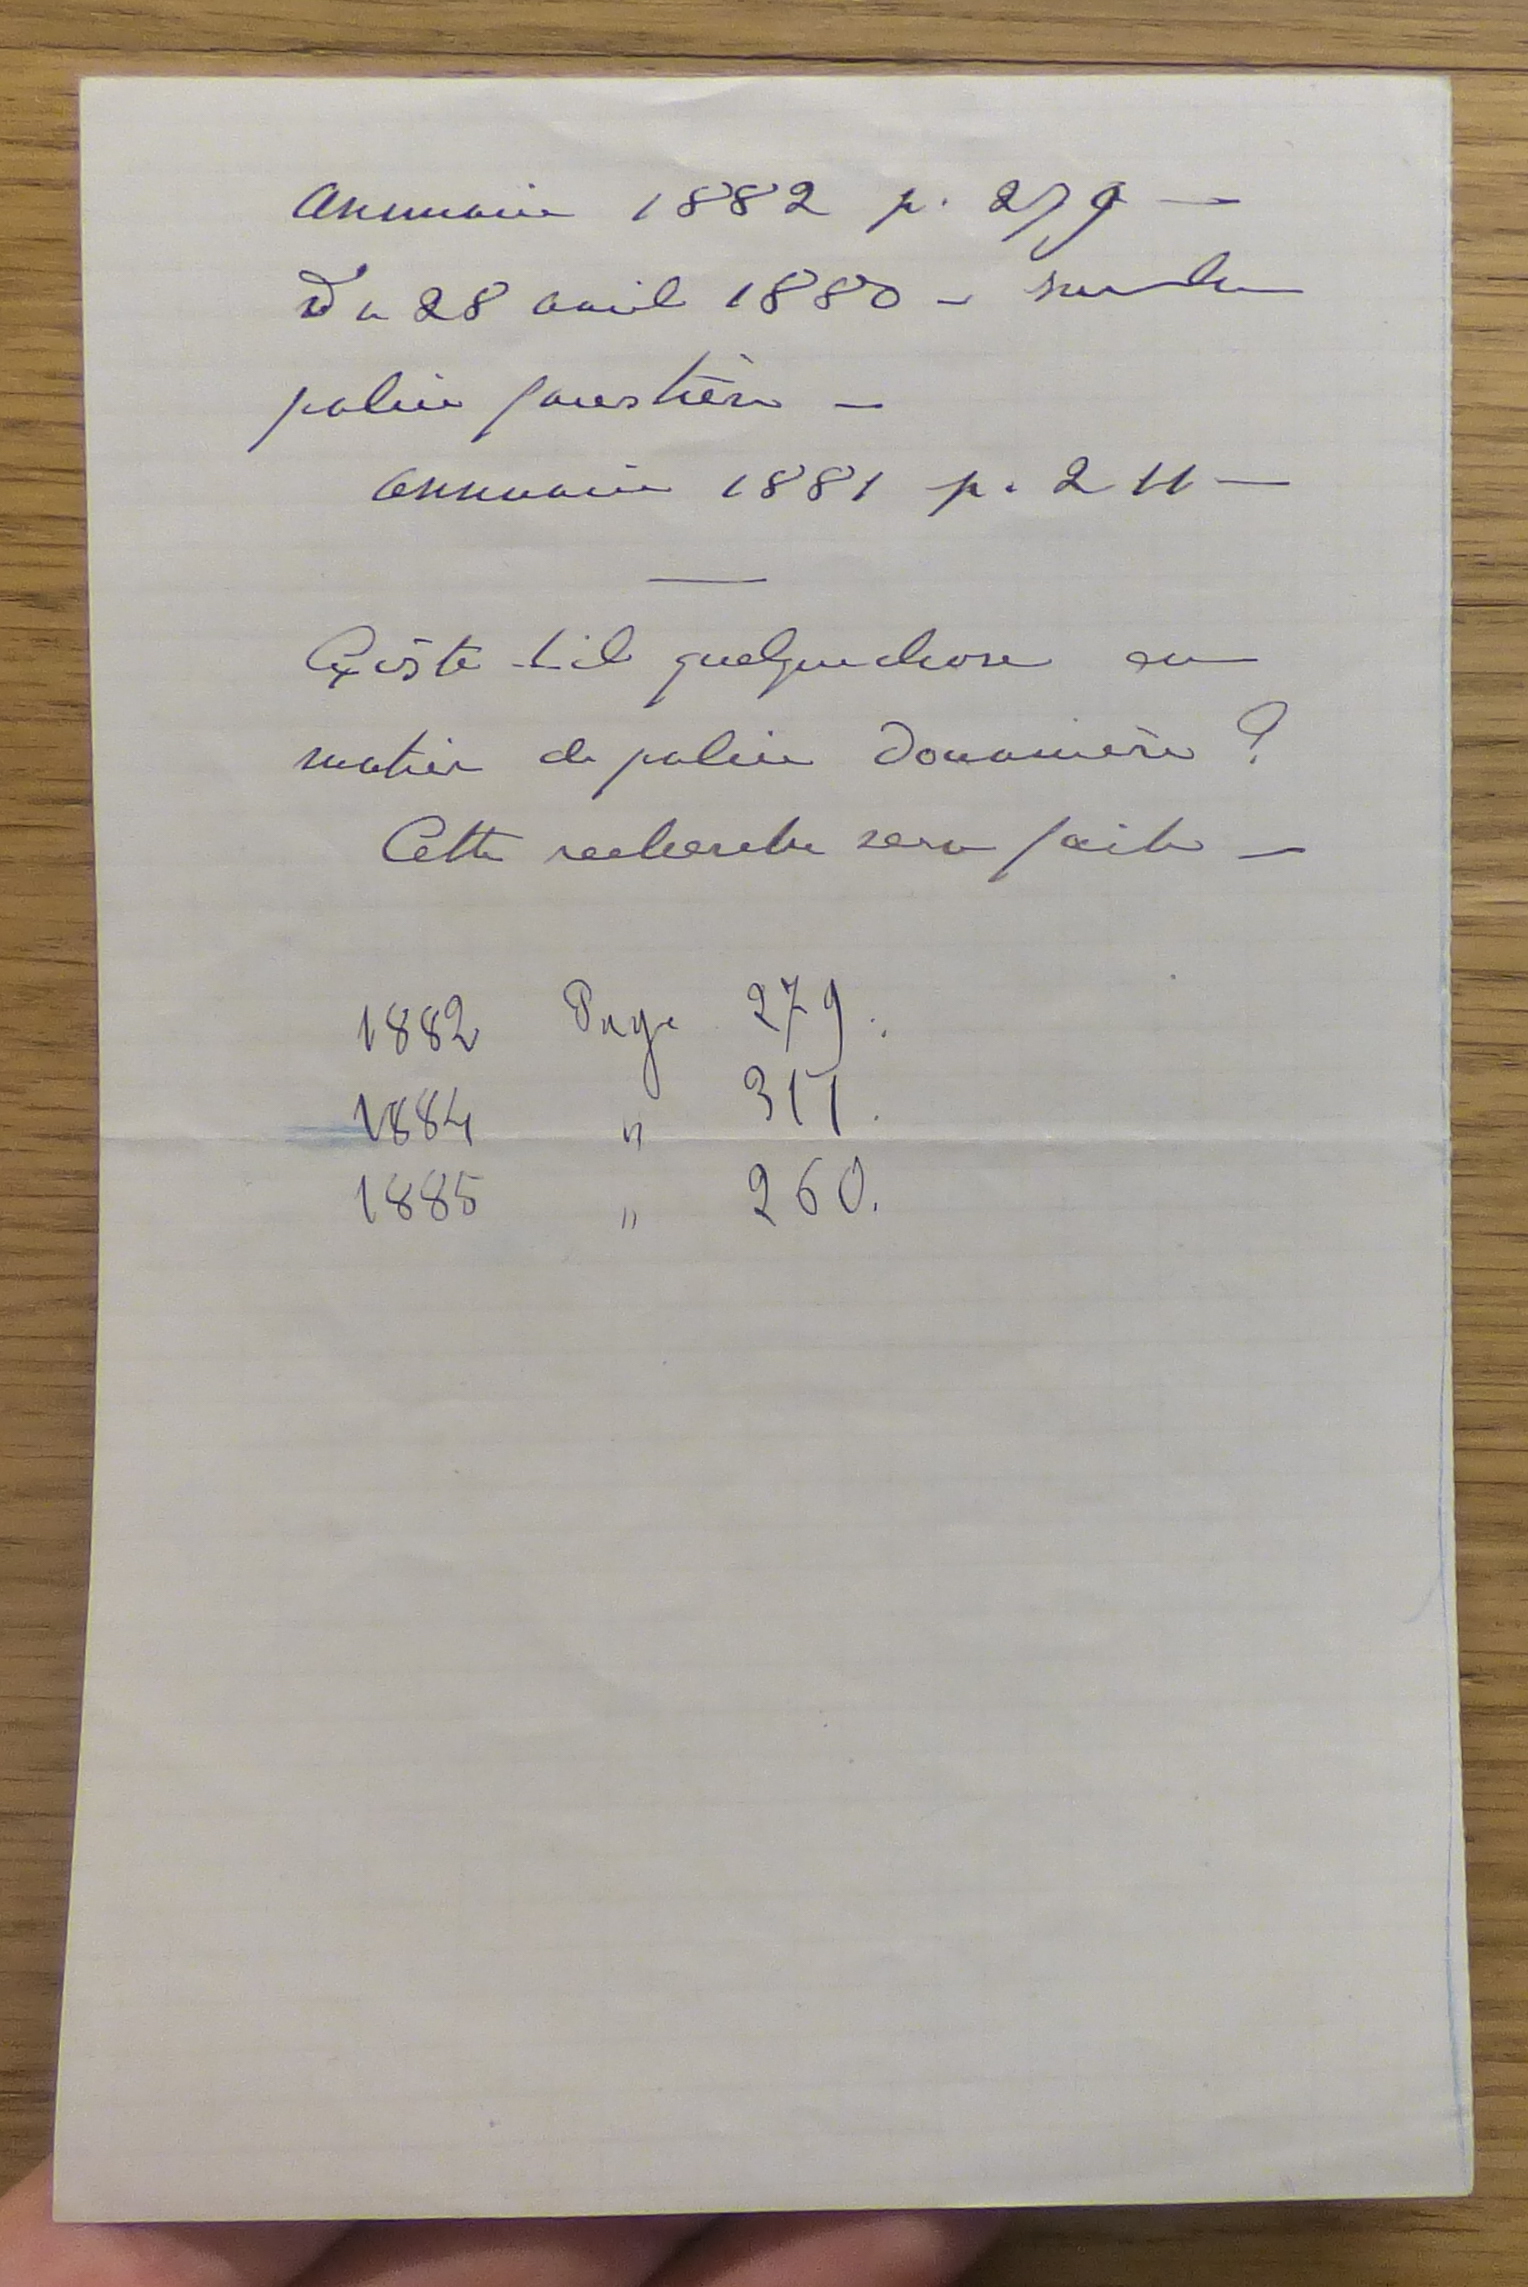 Annuaire 1882 p. 279 —
Du 28 avril 1880 — sur la
police forestière —
Annuaire 1881 p. 211 —
Existe-t-il quelque chose en
matière de police douanière ?
Cette recherche sera faite —
1882 Page 279.
1884 " 311.
1885 " 260.